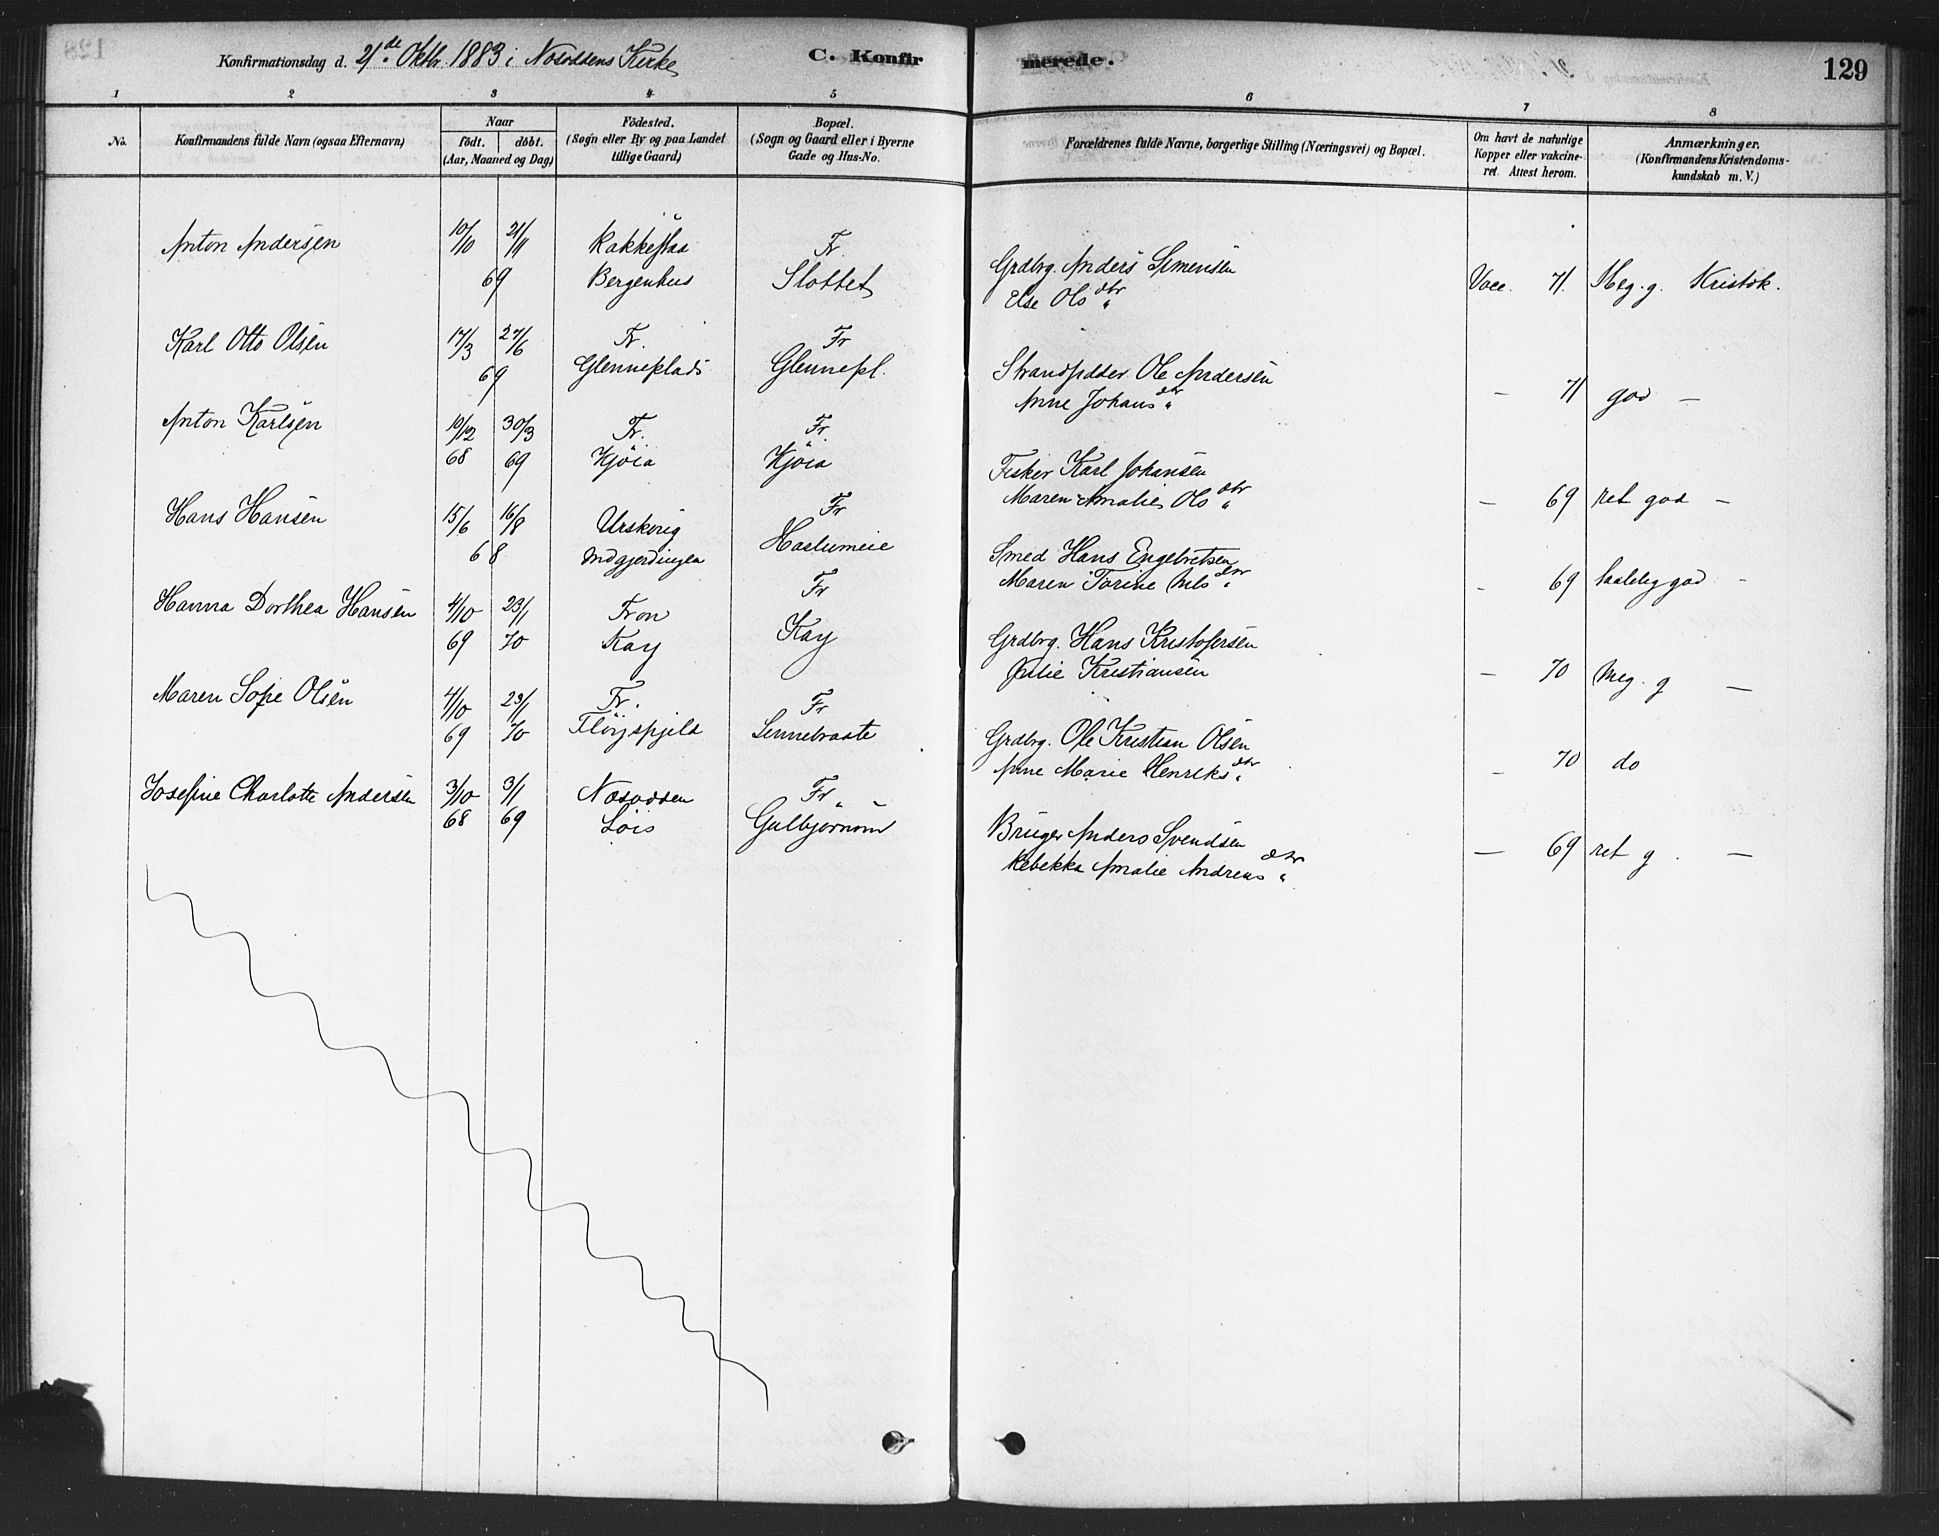 Konfirmationsdag d. 21de Oktbr. 1883 i Nesoddens Kirke
C. Konfirmerede.
129
1 2 3 4 5 6 7 8
No.
Konfirmandens fulde Navn (ogsaa Efternavn)
Naar
födt. döbt.
(Aar, Maaned og Dag)
Födested.
(Sogn eller By og paa Landet
tillige Gaard)
Bopæl.
(Sogn og Gaard eller i Byerne
Gade og Hus-No.
Forældrenes fulde Navne, borgerlige Stilling (Næringsvei) og Bopæl.
Om havt de naturlige
Kopper eller vakcine-
ret. Attest herom.
Anmærkninger.
(Konfirmandens Kristendoms-
kundskab m. V.)
Anton Andersen 10/10 21/11 Rakkestad Fr.
69 Bergenhus Slottet
Grdbrg. Anders Simensen
Else Olsdtr
Vacc. 71. Meg. g. Kristdk.
Karl Otto Olsen 17/3 27/6 Fr. Fr
69 Glenneplads Glennepl.
Strandsidder Ole Andersen
Anne Johansdtr
— 71 god —
Anton Karlsen 10/12 30/3 Fr. Fr.
68 69 Kjöia Kjöia
Fisker Karl Johansen
Maren Amalie Olsdtr
— 69 ret god —
Hans Hansen 15/6 16/8 Urskoug Fr
68 Indgjerdingen Haslumeie
Smed Hans Engebretsen
Maren Torine Nilsdtr
- 69 taalelig god -
Hanna Dorthea Hansen 4/10 23/1 Fron Fr
69 70 Kay Kay
Grdbrg. Hans Kristofersen
Julie Kristiansen
— 70 Meg. g —
Maren Sofie Olsen 4/10 23/1 Fr. Fr
69 70 Flöyspjeld Sennebraate
Grdbrg. Ole Kristian Olsen
Anne Marie Henriksdtr
— 70 do
Josefine Charlotte Andersen 3/10 3/1 Nesodden Fr
68 69 Löis Gulbjørnrud
Bruger Anders Svendsen
Rebekka Amalie Andreasdtr
— 69 ret g. —